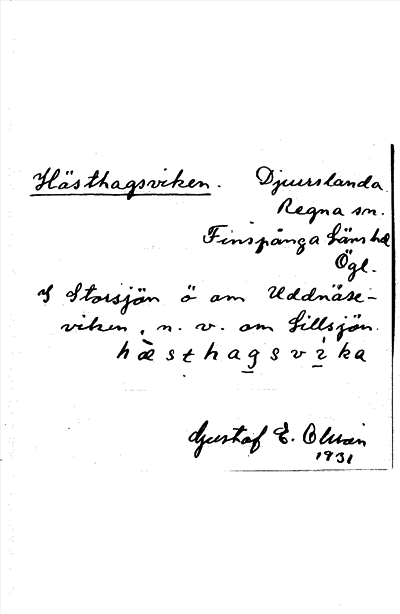 Hästhagsviken. Djurslanda
Regna sn.
Finspånga Läns hd
Ögl.
I Storsjön ö om Uddnäse-
viken, n. v. om Lillsjön.
hæ̀sthagsvìka
Gustaf E. Olwin
1931